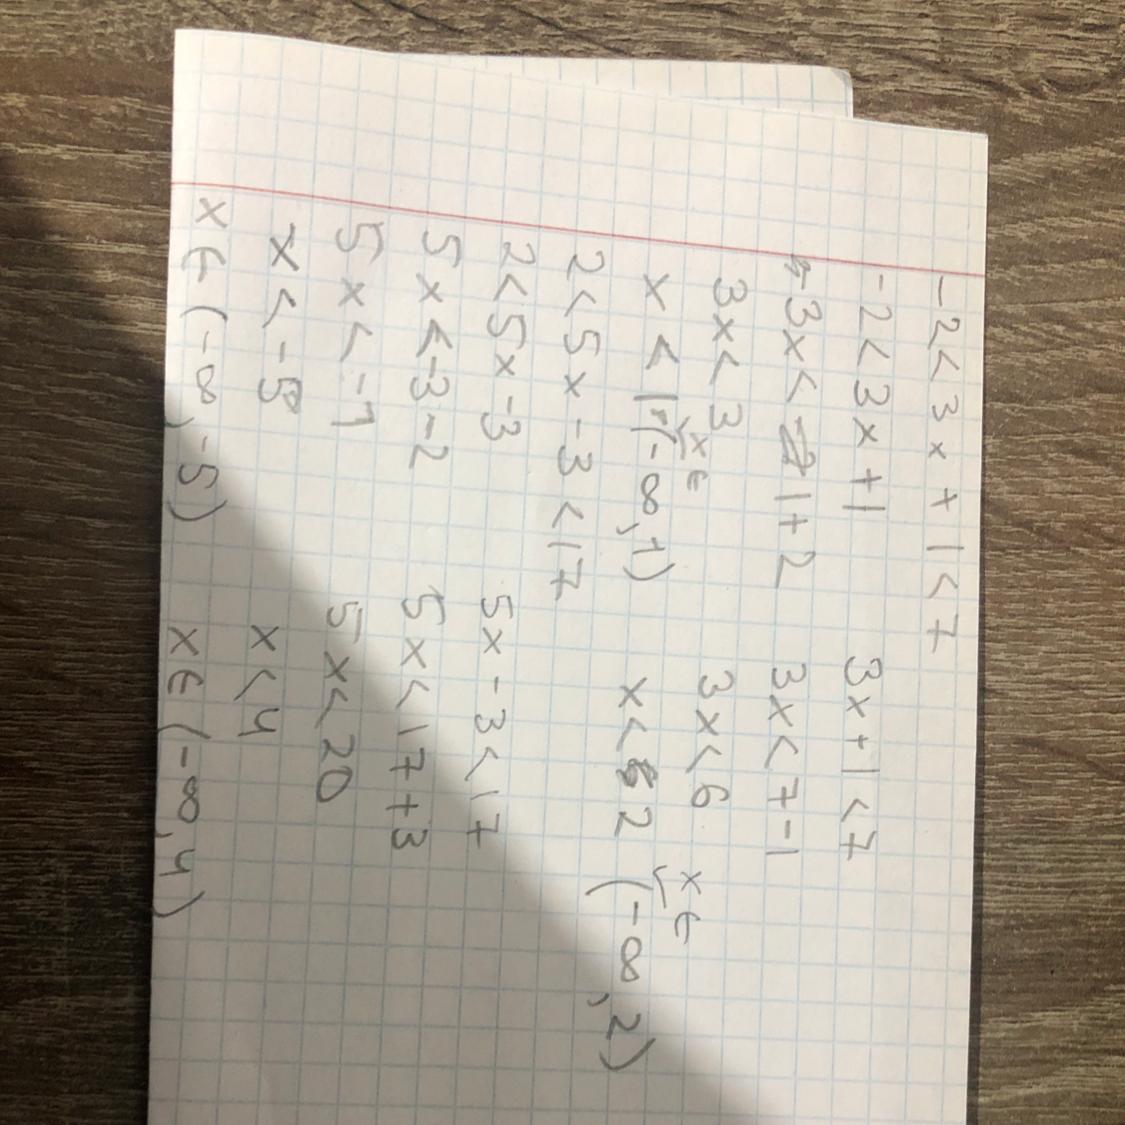 -2<3x+1<7
-2<3x+1 3x+1<7
-3x<1+2 3x<7-1
3x<3 3x<6
x<1 x∈(-∞,1) x<2 x∈(-∞,2)
2<5x-3<17
2<5x-3 5x-3<17
5x<-3-2 5x<17+3
5x<-1 5x<20
x<-5 x<4
x∈(-∞,-5) x∈(-∞,4)